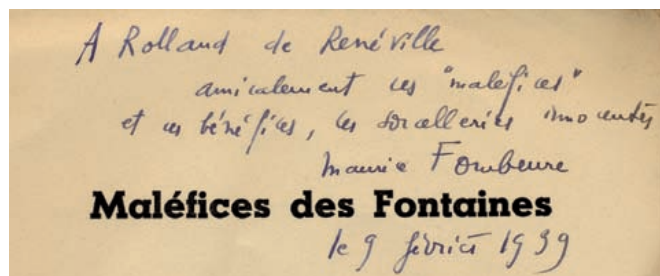 A Rolland de Renéville
amicalement ces "maléfices"
et ces bénéfices, ces sorcelleries innocentes
Maurice Fombeure
Maléfices des Fontaines
le 9 février 1939